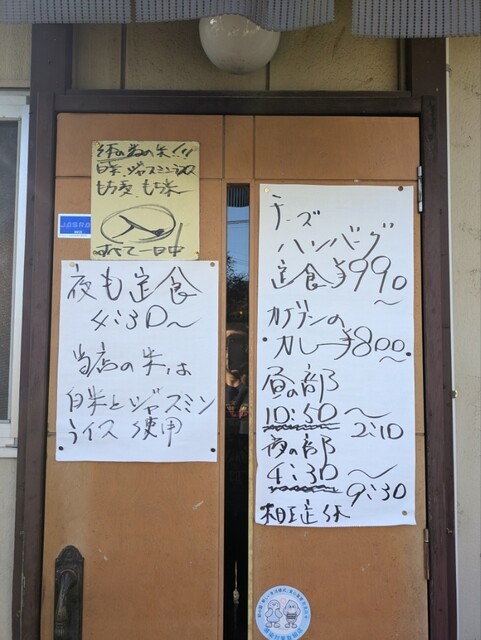 米
白米、ジャスミンライス
もち麦、もち米
すべて一日中
夜も定食
4:30〜
当店の米は
白米とジャスミン
ライス使用
チーズ
ハンバーグ
定食¥990
〜
カレー¥800〜
昼の部
10:50〜
2:10
夜の部
4:30〜
9:30
定休